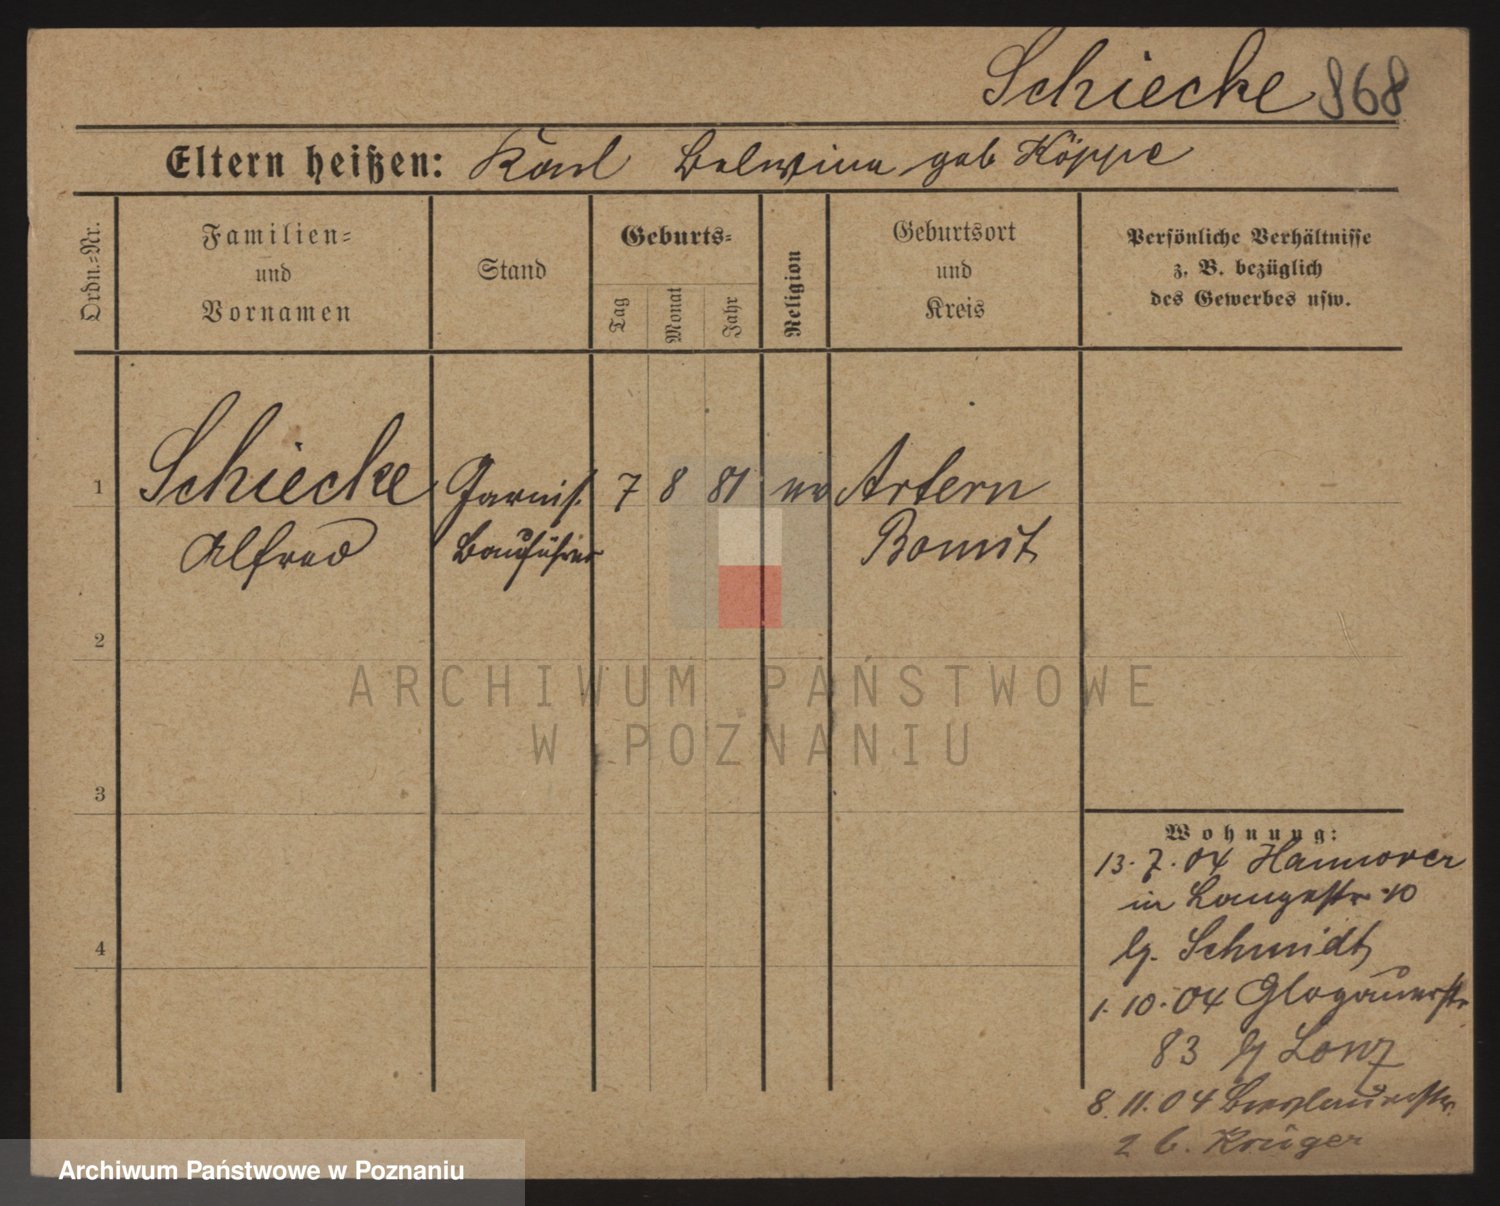 Schiecke 868
Eltern heißen: Karl Balwina geb Köppe
Ordn.=Nr.
Familien=
und
Vornamen
Stand
Geburts=
Tag
Monat
Jahr
Religion
Geburtsort
und
Kreis
Persönliche Verhältnisse
z. B. bezüglich
des Gewerbes usw.
1
Schiecke Garnis. 7 8 81 ev Artern
Alfred Bauführer Bomst
2
3
4
ARCHIWUM PAŃSTWOWE
W POZNANIU
Wohnung:
13.7.04 Hannover
in Langestr 10
b. Schmidt
1.10.04 Glogauerstr
83 b Lenz
8.11.04 Breslauerstr.
2 b. Krüger
Archiwum Państwowe w Poznaniu